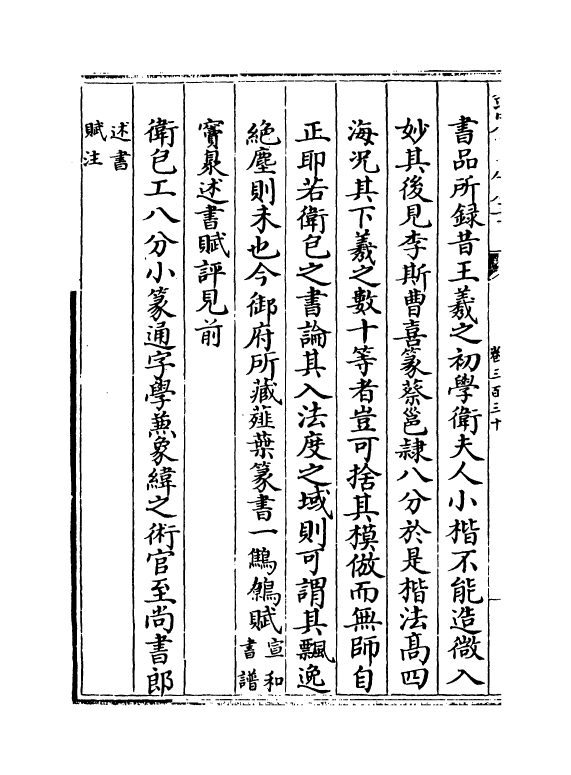 卷三百三十
書品所録昔王羲之初學衛夫人小楷不能造微入
妙其後見李斯曹喜篆蔡邕隷八分於是楷法髙四
海況其下羲之數十等者豈可捨其模倣而無師自
正耶若衛包之書論其入法度之域則可謂其飄逸
絶塵則未也今御府所藏薤葉篆書一鷦鷯賦宣和書譜
竇臮述書賦評見前
衛包工八分小篆通字學兼象緯之術官至尚書郎
述書賦注